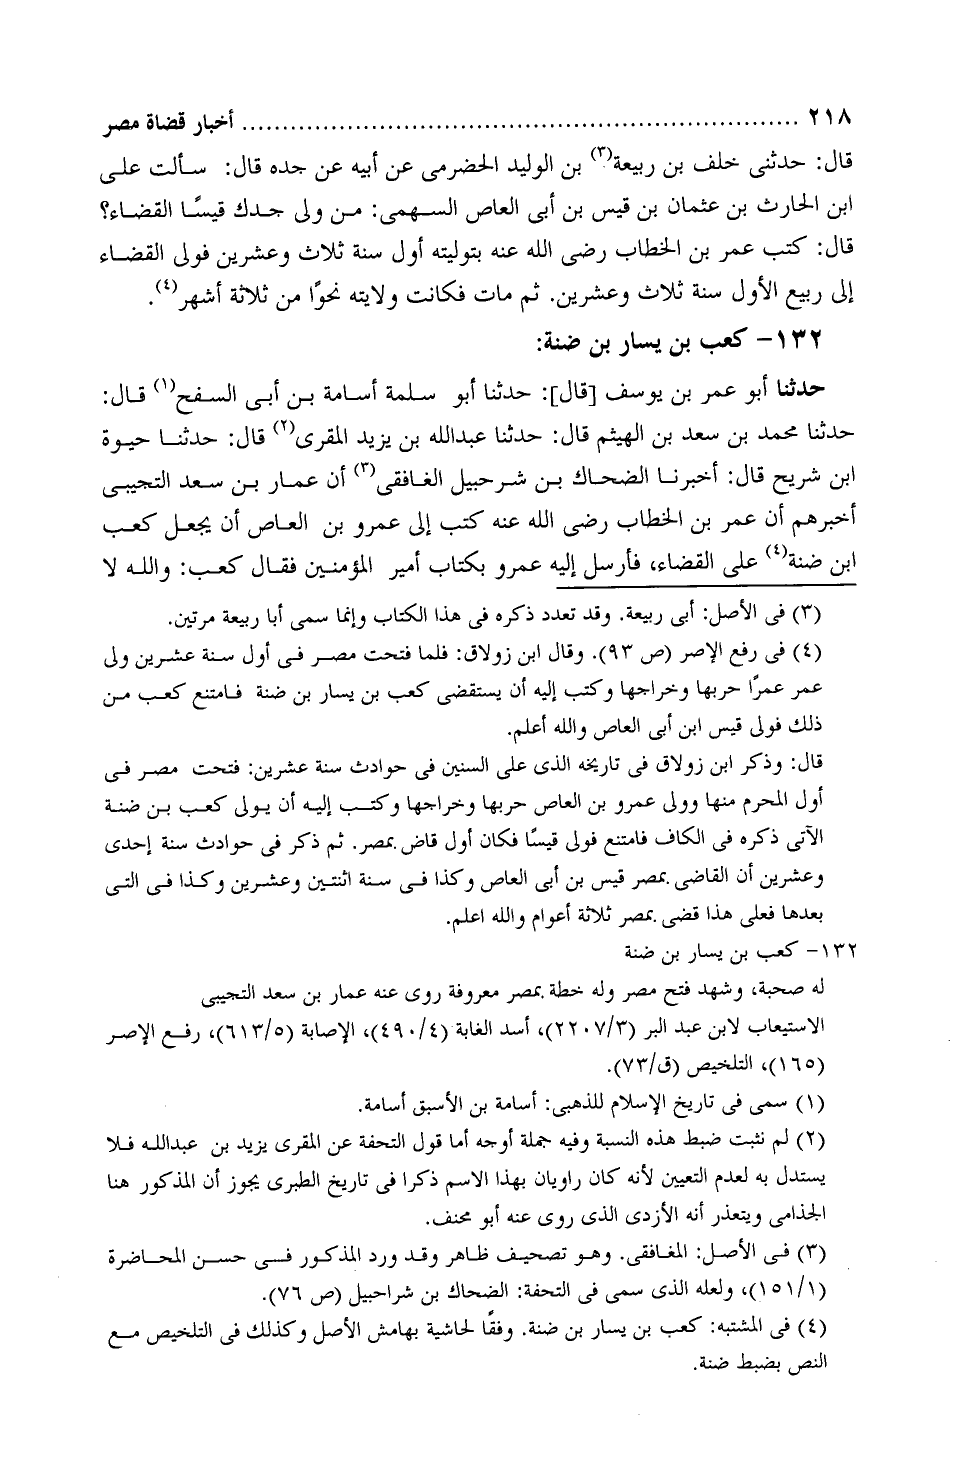 ٢١٨ ........................................................................ أخبار قضاة مصر
قال: حدثنى خلف بن ربيعة(٣) بن الوليد الحضرمى عن أبيه عن جده قال: سألت على
ابن الحارث بن عثمان بن قيس بن أبى العاص السهمى: من ولى جدك قيسًا القضاء؟
قال: كتب عمر بن الخطاب رضى الله عنه بتوليته أول سنة ثلاث وعشرين فولى القضاء
إلى ربيع الأول سنة ثلاث وعشرين. ثم مات فكانت ولايته نحوًا من ثلاثة أشهر(٤).
١٣٢- كعب بن يسار بن ضنة:
حدثنا أبو عمر بن يوسف [قال]: حدثنا أبو سلمة أسامة بن أبى السفح(١) قال:
حدثنا محمد بن سعد بن الهيثم قال: حدثنا عبدالله بن يزيد المقرى(٢) قال: حدثنا حيوة
ابن شريح قال: أخبرنا الضحاك بن شرحبيل الغافقى(٣) أن عمار بن سعد التجيبى
أخبرهم أن عمر بن الخطاب رضى الله عنه كتب إلى عمرو بن العاص أن يجعل كعب
ابن ضنة(٤) على القضاء، فأرسل إليه عمرو بكتاب أمير المؤمنين فقال كعب: والله لا
(٣) فى الأصل: أبى ربيعة. وقد تعدد ذكره فى هذا الكتاب وإنما سمى أبا ربيعة مرتين.
(٤) فى رفع الإصر (ص ٩٣). وقال ابن زولاق: فلما فتحت مصر فى أول سنة عشرين ولى
عمر عمرًا حربها وخراجها وكتب إليه أن يستقضى كعب بن يسار بن ضنة فامتنع كعب من
ذلك فولى قيس ابن أبى العاص والله أعلم.
قال: وذكر ابن زولاق فى تاريخه الذى على السنين فى حوادث سنة عشرين: فتحت مصر فى
أول المحرم منها وولى عمرو بن العاص حربها وخراجها وكتب إليه أن يولى كعب بن ضنة
الآتى ذكره فى الكاف فامتنع فولى قيسًا فكان أول قاض بمصر. ثم ذكر فى حوادث سنة إحدى
وعشرين أن القاضى بمصر قيس بن أبى العاص وكذا فى سنة اثنتين وعشرين وكذا فى التى
بعدها فعلى هذا قضى بمصر ثلاثة أعوام والله اعلم.
١٣٢- كعب بن يسار بن ضنة
له صحبة، وشهد فتح مصر وله خطة بمصر معروفة روى عنه عمار بن سعد التجيبى
الاستيعاب لابن عبد البر (٢٢٠٧/٣)، أسد الغابة (٤٩٠/٤)، الإصابة (٦١٣/٥)، رفع الإصر
(١٦٥)، التلخيص (ق/٧٣).
(١) سمى فى تاريخ الإسلام للذهبى: أسامة بن الأسبق أسامة.
(٢) لم نثبت ضبط هذه النسبة وفيه جملة أوجه أما قول التحفة عن المقرى يزيد بن عبدالله فلا
يستدل به لعدم التعيين لأنه كان راويان بهذا الاسم ذكرا فى تاريخ الطبرى يجوز أن المذكور هنا
الجذامى ويتعذر أنه الأزدى الذى روى عنه أبو مخنف.
(٣) فى الأصل: المغافقى. وهو تصحيف ظاهر وقد ورد المذكور فى حسن المحاضرة
(١٥١/١)، ولعله الذى سمى فى التحفة: الضحاك بن شراحبيل (ص ٧٦).
(٤) فى المشتبه: كعب بن يسار بن ضنة. وفقًا لحاشية بهامش الأصل وكذلك فى التلخيص مع
النص بضبط ضنة.